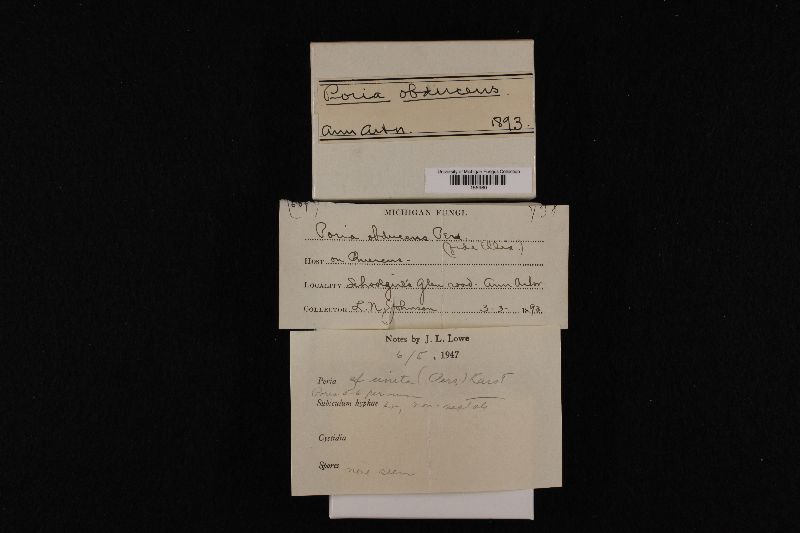 Poria obducens.
Ann Arbor. 1893.
University of Michigan Fungus Collection
MICHIGAN FUNGI
Poria obducens Pers.
HOST on Quercus-
LOCALITY Schoolgirl's Glen road. Ann Arbor
COLLECTOR L. N. Johnson 3-3- 1893
Notes by J. L. Lowe
6/5, 1947
Poria cf unita (Pers.) Karst
Pores 5-6 per mm
Subiculum hyphae non-septate
Cystidia
Spores none seen